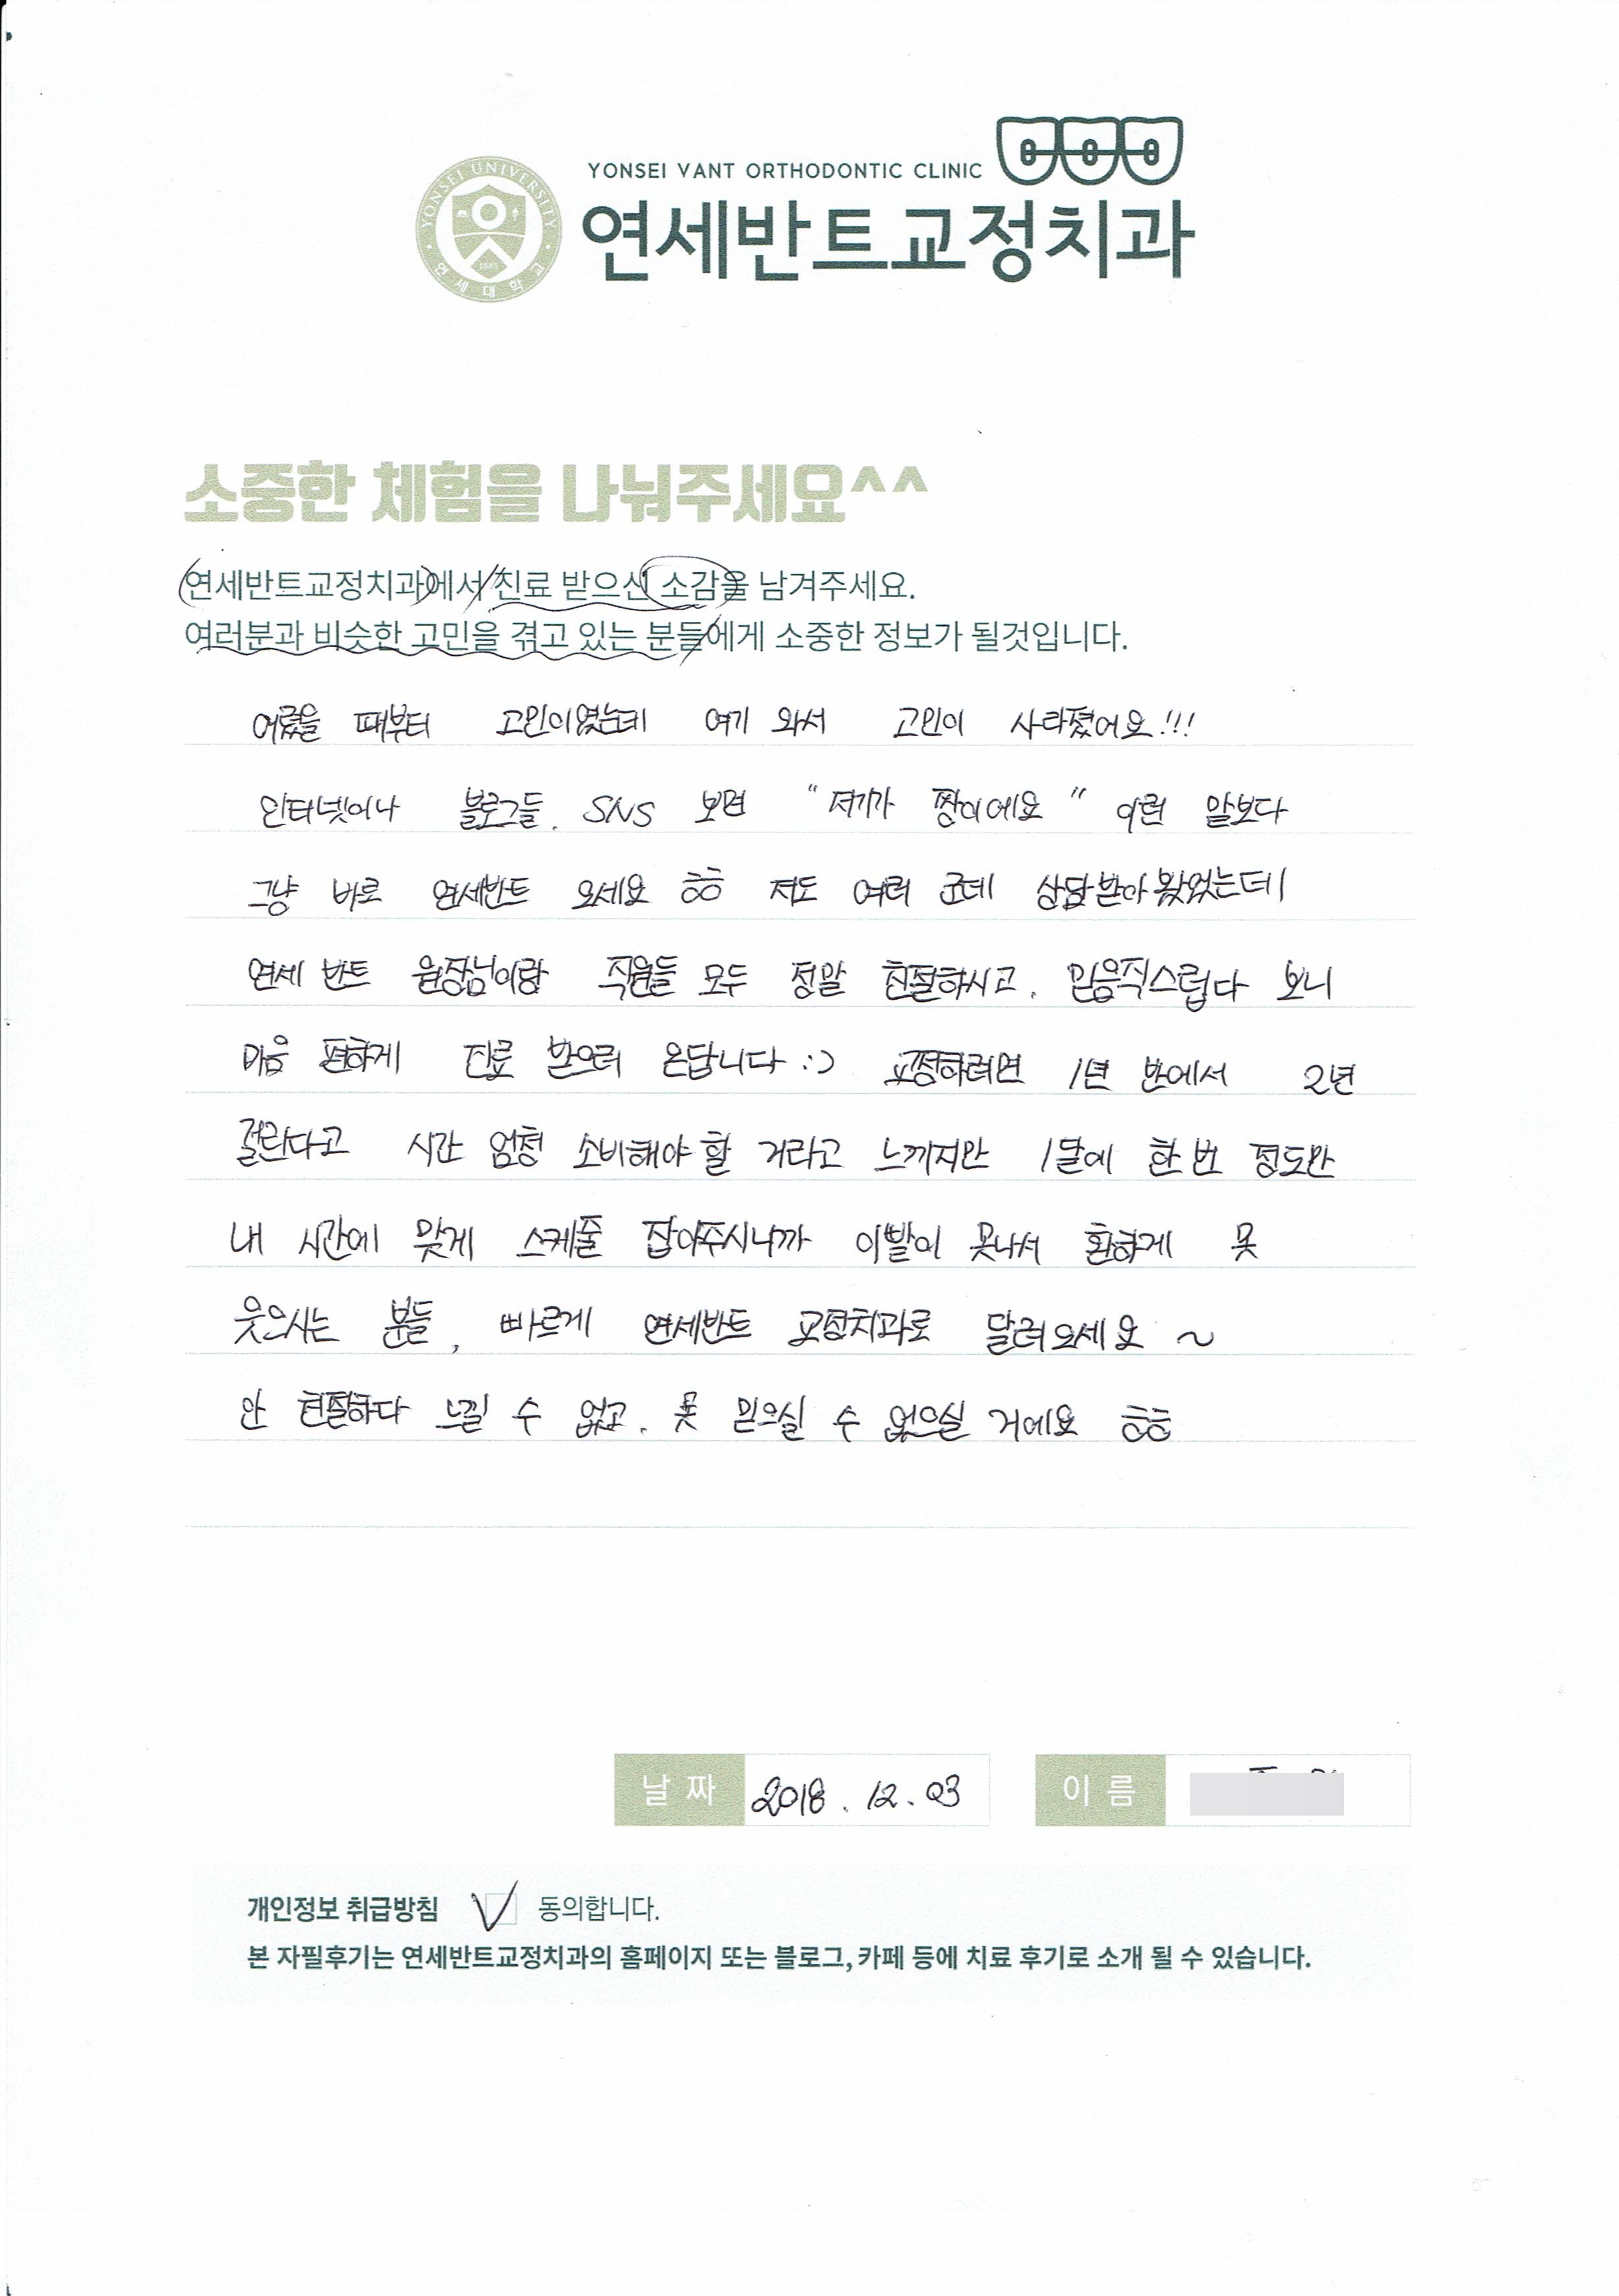 YONSEI VANT ORTHODONTIC CLINIC
YONSEI UNIVERSITY
1885
연세대학교
연세반트교정치과
소중한 체험을 나눠주세요^^
연세반트교정치과에서 진료 받으신 소감을 남겨주세요.
여러분과 비슷한 고민을 겪고 있는 분들에게 소중한 정보가 될것입니다.
어렸을 때부터 고민이였는데 여기 와서 고민이 사라졌어요!!!
인터넷이나 블로그들, SNS 보면 "저기가 짱이에요" 이런 말보다
그냥 바로 연세반트 오세요 ㅎㅎ 저도 여러 군데 상담받아봤었는데
연세 반트 원장님이랑 직원들 모두 정말 친절하시고, 믿음직스럽다 보니
마음 편하게 진료 받으러 온답니다 :) 교정하려면 1년 반에서 2년
걸린다고 시간 엄청 소비해야 할 거라고 느끼지만 1달에 한 번 정도만
내 시간에 맞게 스케줄 잡아주시니까 이빨이 못나서 환하게 못
웃으시는 분들, 빠르게 연세반트 교정치과로 달려오세요 ~
안 친절하다 느낄 수 없고, 못 믿으실 수 없으실 거에요 ㅎㅎ
날 짜 2018. 12. 03 이 름
개인정보 취급방침 동의합니다.
본 자필후기는 연세반트교정치과의 홈페이지 또는 블로그, 카페 등에 치료 후기로 소개 될 수 있습니다.